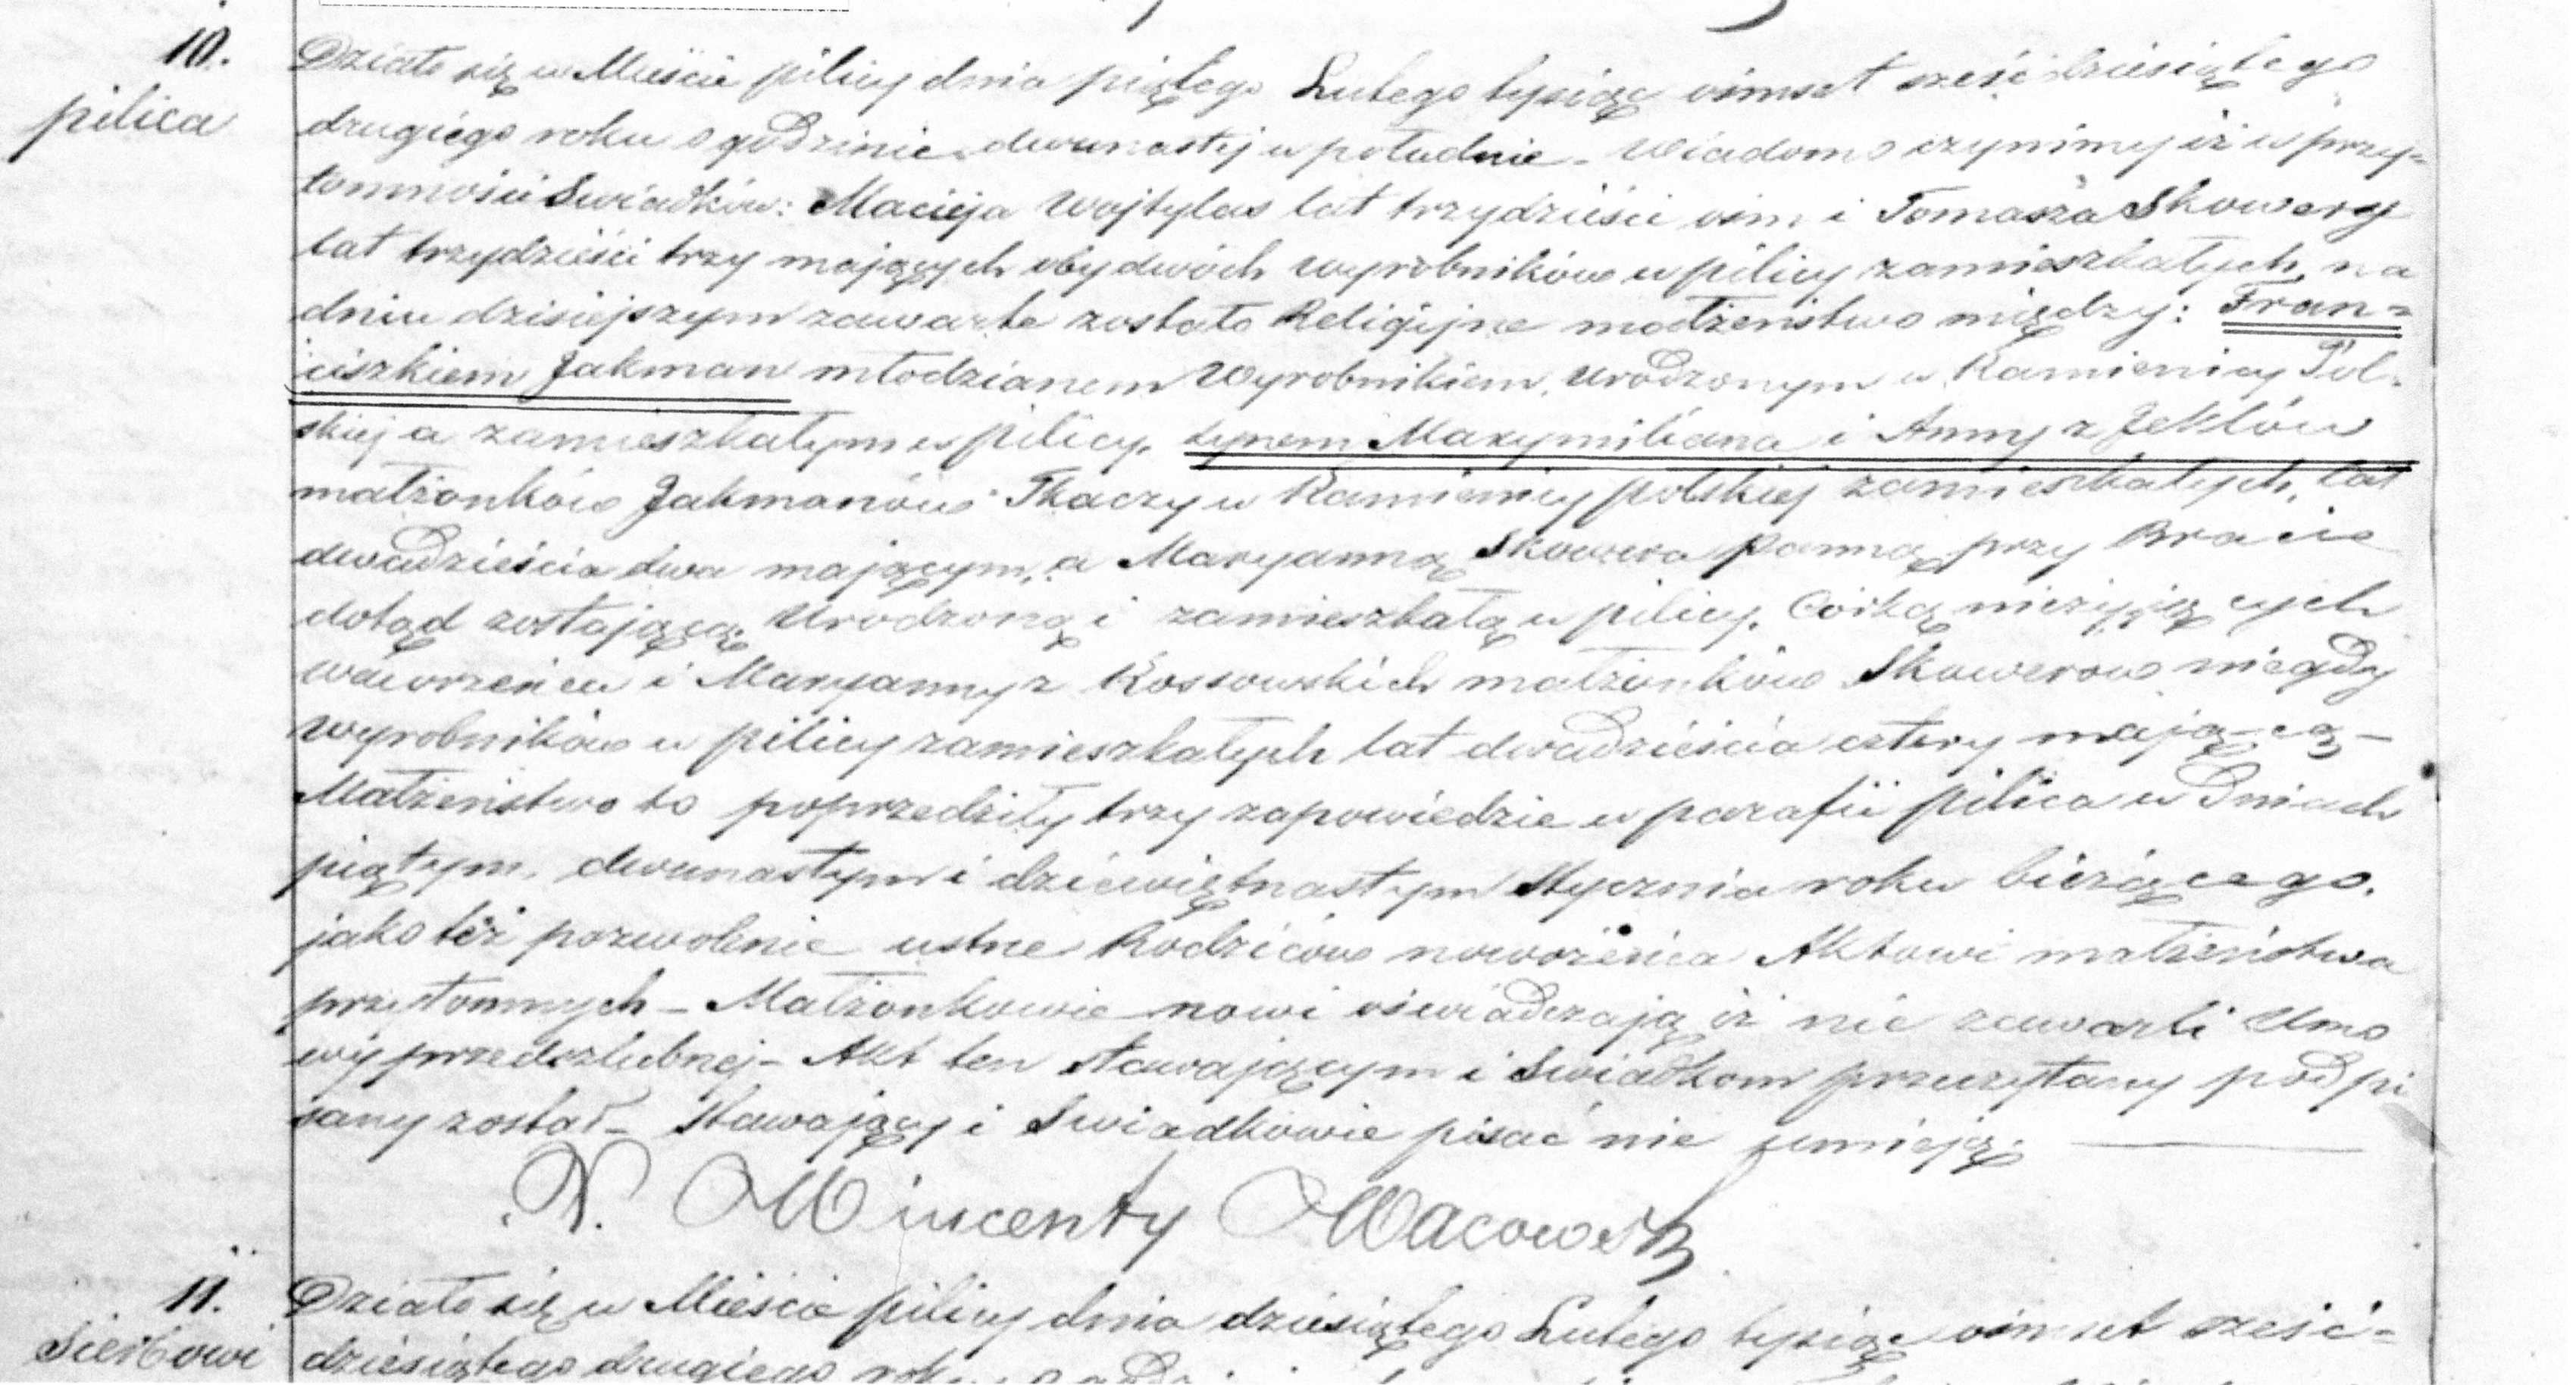 10.
pilica
Działo się w Mieście pilicy dnia piątego Lutego tysiąc ośmset sześćdziesiątego
drugiego roku o godzinie dwunastej w południe. Wiadomo czynimy iż w przy=
tomności Swiadków: Macieja Wojtylas lat trzydzieści ośm i Tomasza Skowery
lat trzydzieści trzy mających obydwóch wyrobników w pilicy zamieszkałych, na
dniu dzisiejszym zawarte zostało Religijne małżeństwo między: Fran=
ciszkiem Jakman młodzianem Wyrobnikiem, urodzonym w Kamienicy Pol=
skiej a zamieszkałym w pilicy, synem Maxymiliana i Anny z Jeklów
małżonków Jakmanów Tkaczy w Kamienicy polskiej zamieszkałych, lat
dwadzieścia dwa mającym, a Maryanną Skowera panną przy Bracie
dotąd zostającą, Urodzoną i zamieszkałą w pilicy, Córką nieżyjących
wawrzeńca i Maryanny z Kossowskich małżonków Skowerow niegdy
wyrobników w pilicy zamieszkałych lat dwadzieścia cztery mającą -
Małżeństwo to poprzedziły trzy zapowiedzie w parafii pilica w Dniach
piątym, dwunastym i dziewiętnastym Stycznia roku bieżącego,
jako też pozwolenie ustne Rodziców nowożeńca Aktowi małżeństwa
przytomnych - Małżonkowie nowi oświadczają iż nie zawarli Umo
wy przedszlubnej - Akt ten stawającym i Swiadkom przeczytany podpi
sany został - Stawający i Swiadkowie pisać nie umieją.
X. Wincenty Wacowski
11.
Działo się w Mieście pilicy dnia dziesiątego Lutego tysiąc ośmset sześć=
dziesiątego drugiego roku